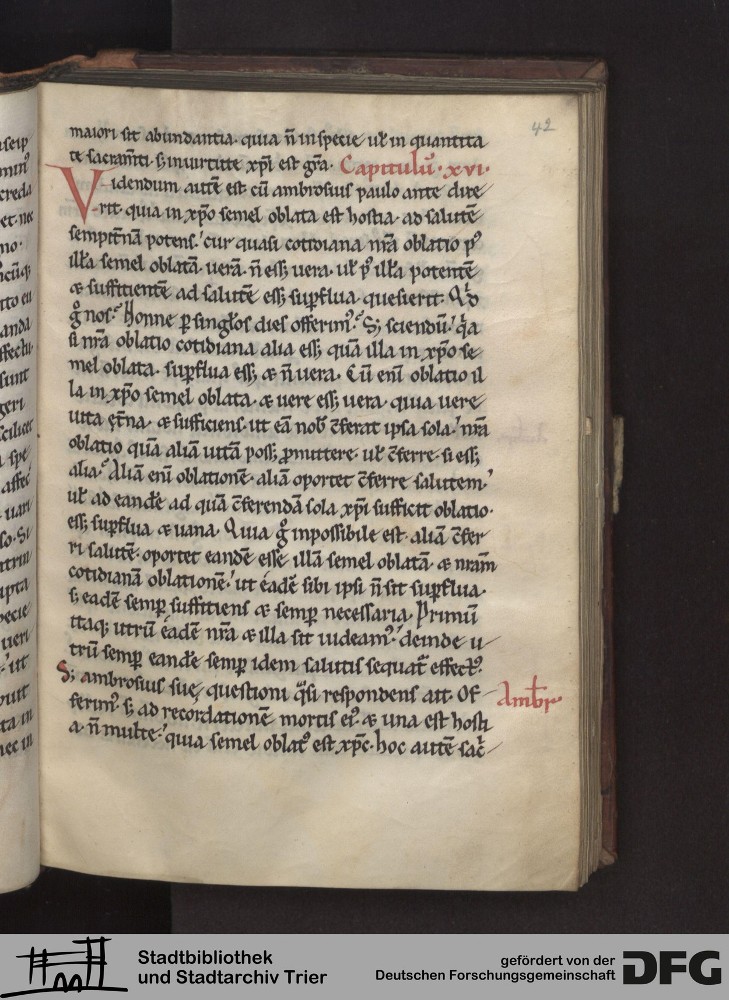 42
maiori sit abundantia. quia n̄ in specie uł in quantita
te sacram̄ti. s; in uirtute xp̄i est gr̄a. Capitulū. xvi.
Videndum autē est cū ambrosius paulo ante dixe
rit. quia in xp̄o semel oblata est hostia. ad salutē
sempit̄nā potens. cur quasi cotidiana nr̄a oblatio pꝰ
illā semel oblatā. uerā. n̄ ess; uera. uł pꝰ illā potentē
⁊ suffitientē ad salutē ess; supflua. quesierit. Qͥd
gͦ nos? Nonne p singłos dies offerimꝰ? S; sciendū. qͥa
si nr̄a oblatio cotidiana alia ess; quā illa in xp̄o se
mel oblata. supflua ess; ⁊ n̄ uera. Cū eni oblatio il
la in xp̄o semel oblata. ⁊ uere ess; uera. quia uere
uita et̄na. ⁊ sufficiens. ut eā nob c̄ferat ipsa sola. nr̄a
oblatio quā aliā uitā poss; pmittere. uł c̄ferre. si ess;
alia? Aliā eni oblationē. aliā oportet c̄ferre salutem.
uł ad eandē ad quā c̄ferendā sola xp̄i sufficit oblatio.
ess; supflua ⁊ uana. Quia gͦ inpossibile est. aliā c̄fer
ri salutē. oportet eandē esse illā semel oblatā. ⁊ nr̄am
cotidianā oblationē. ut eadē sibi ipsi n̄ sit supflua.
s; eadē semp suffitiens ⁊ semp necessaria. Primū
itaq; utrū eadē nr̄a ⁊ illa sit uideamꝰ. deinde u
trū semp eandē semp idem salutis sequat̄ effectꝰ.
S; ambrosius sue questioni qͣsi respondens ait. Of
Ambr
ferimꝰ. s; ad recordationē mortis eiꝰ. ⁊ una est hosti
a. n̄ multe. quia semel oblatꝰ est xp̄c. hoc autē sac̄
seip
creda
et. nec
no.
anda
sunt
geri
scilicet
a spe
affec
uari
so. Si
pecie
uieri
ut
ta in
nec in
Stadtbibliothek
und Stadtarchiv Trier
gefördert von der
Deutschen Forschungsgemeinschaft
DFG